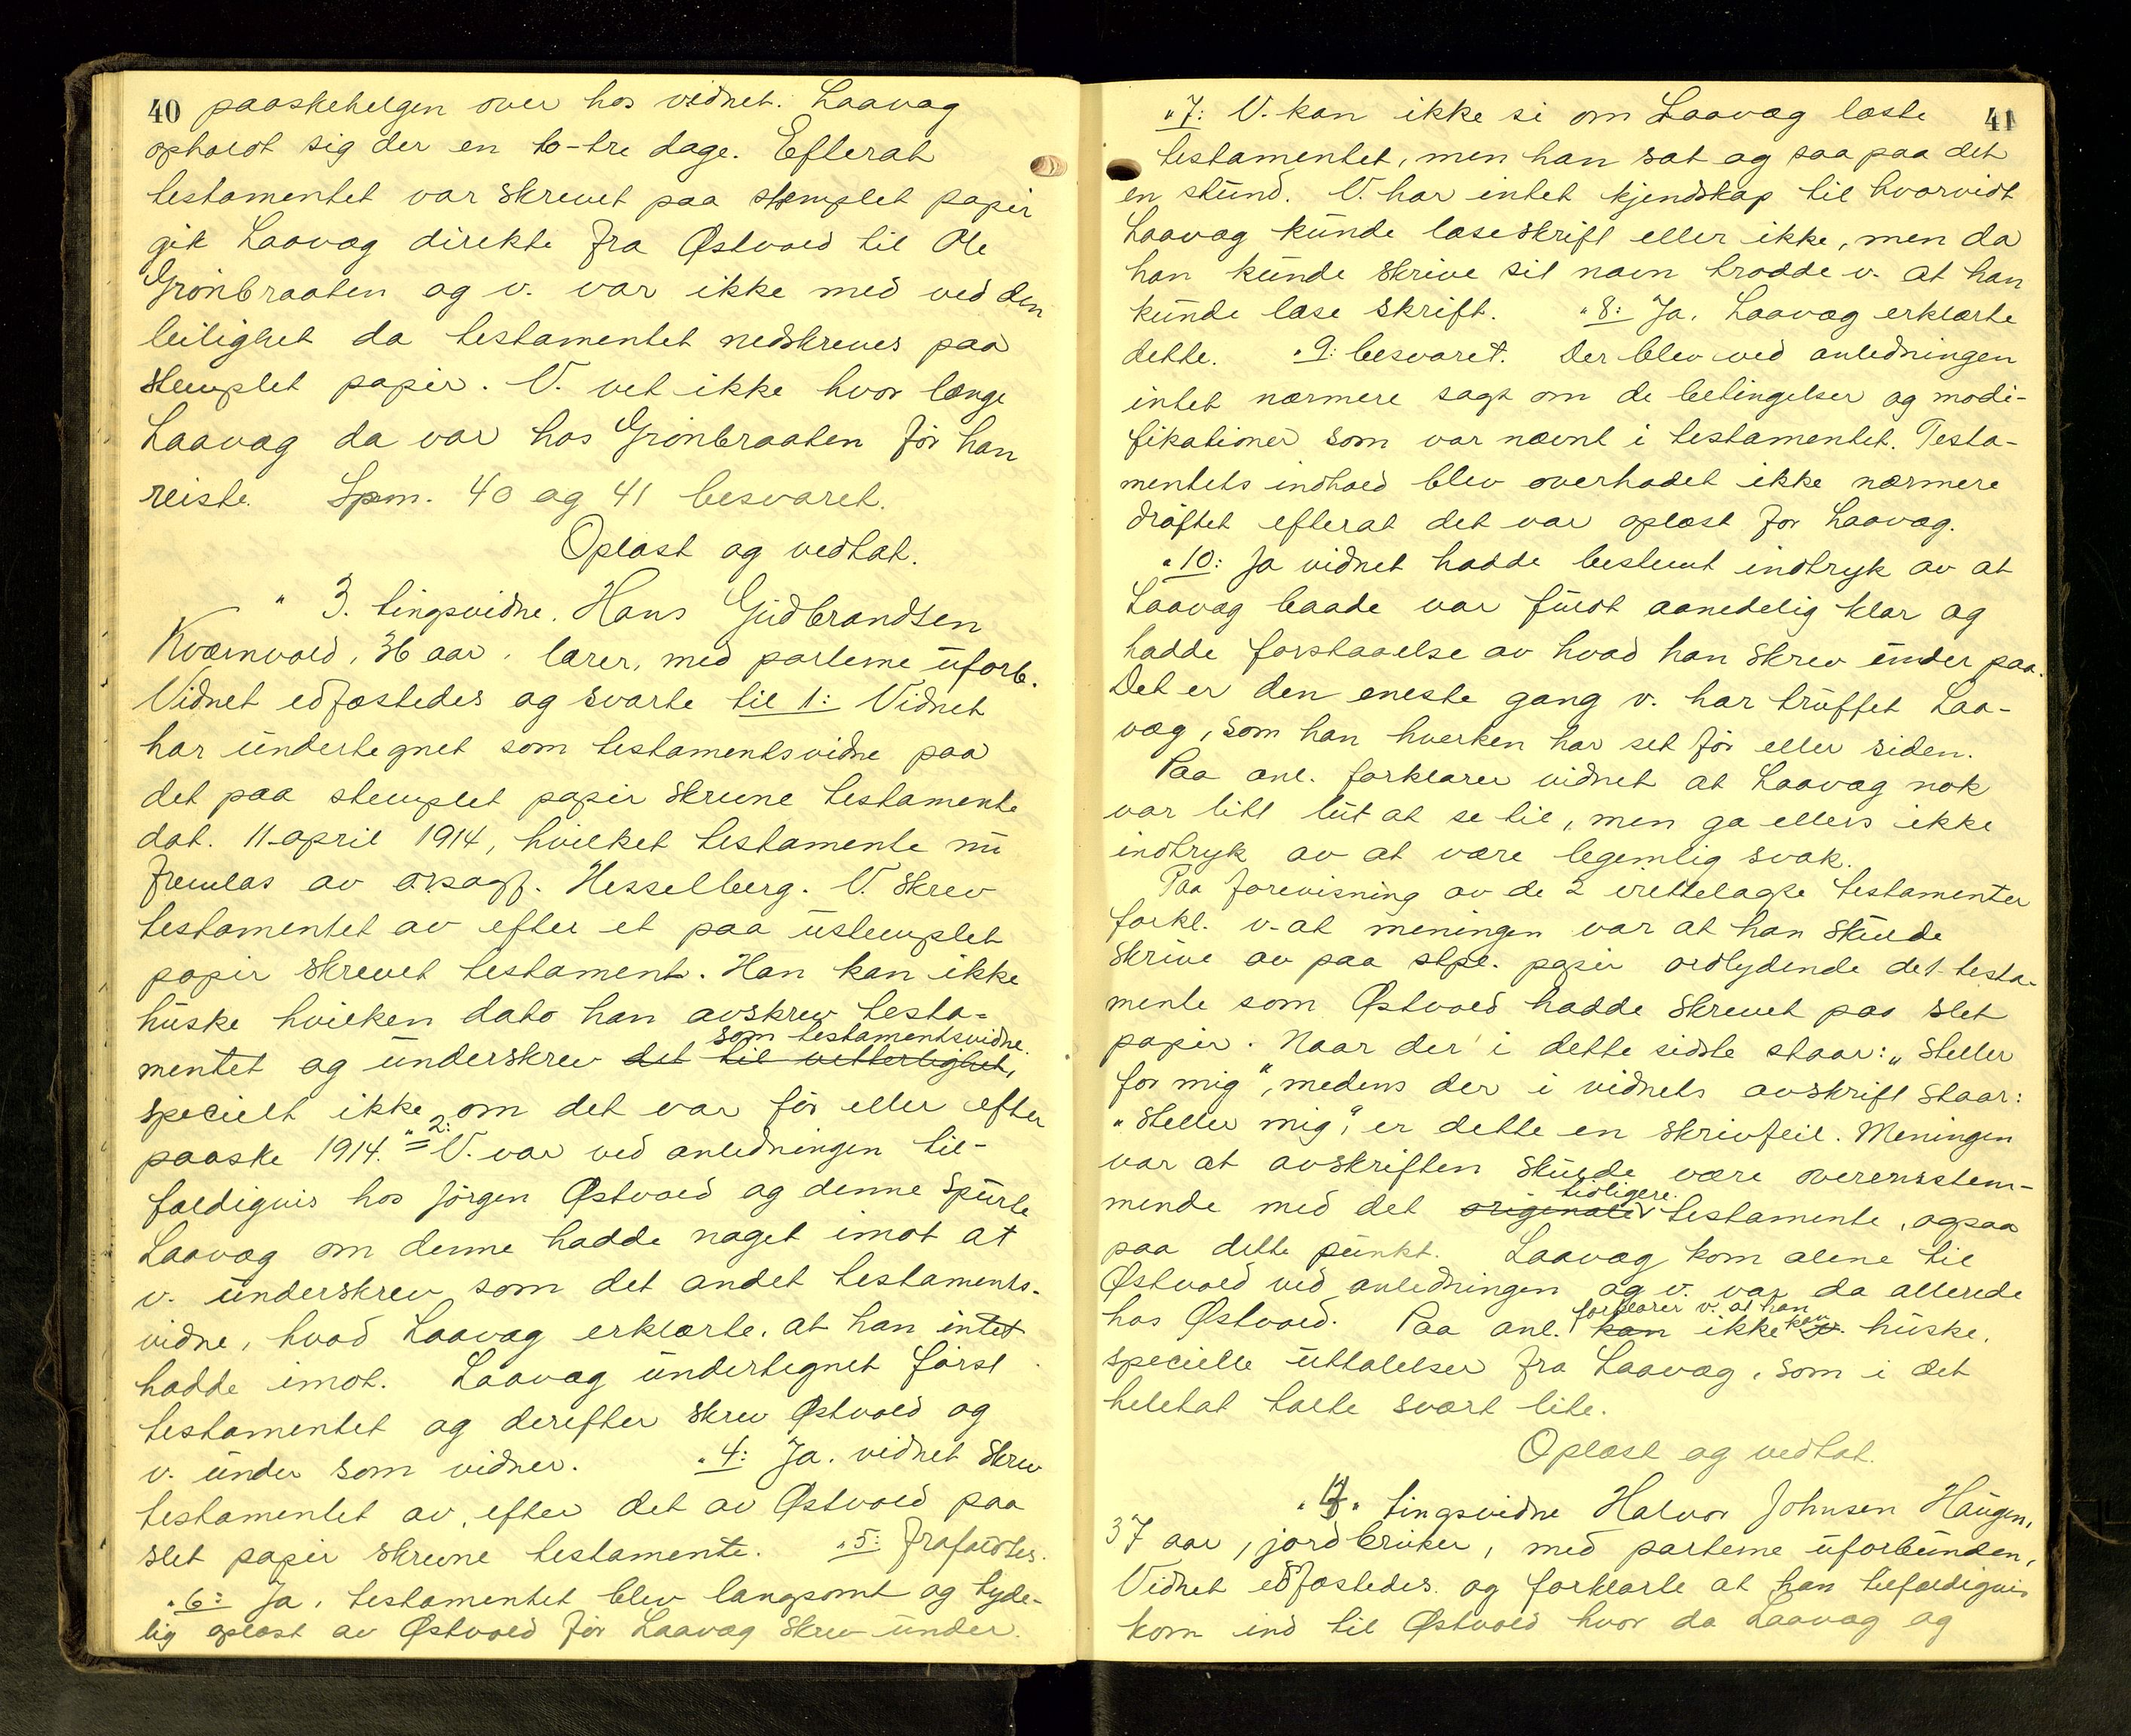 40 paaskehelgen over hos vidnet. Laavag
opholdt sig der en to-tre dage. Efterat
testamentet var skrevet paa stemplet papir
gik Laavag direkte fra Østvold til Ole
Grönbraaten og v. var ikke med ved den
leilighet da testamentet nedskreves paa
stemplet papir. V. vet ikke hvor længe
Laavag da var hos Grönbraaten för han
reiste. Spm. 40 og 41 besvaret.
Oplæst og vedtat.
" 3. tingsvidne. Hans Gudbrandsen
Kværnvold, 36 aar, lærer, med parterne uforb.
Vidnet edfæstedes og svarte til 1: Vidnet
har undertegnet som testamentsvidne paa
det paa stemplet papir skrevne testamente
dat. 11. april 1914, hvilket testamente nu
fremlas av o.r.sagf. Hesselberg. V. skrev
testamentet av efter et paa ustemplet
papir skrevet testament. Han kan ikke
huske hvilken dato han avskrev testa-
som testamentsvidne.
mentet og underskrev det til vitterlighet,
specielt ikke om det var för eller efter
paaske 1914. "2: V. var ved anledningen til-
fældigvis hos Jörgen Østvold og denne spurte
Laavag om denne hadde noget imot at
v. underskrev som det andet testaments-
vidne, hvad Laavag erklærte, at han intet
hadde imot. Laavag undertegnet först
testamentet og derefter skrev Østvold og
v. under som vidner. "4: Ja. vidnet skrev
testamentet av efter det av Østvold paa
slet papir skrevne testamente. "5: frafaldtes.
"6: Ja, testamentet blev langsomt og tyde-
lig oplæst av Østvold för Laavag skrev under.
41
"7: V. kan ikke si om Laavag læste
testamentet, men han sat og saa paa det
en stund. V. har intet kjendskap til hvorvidt
Laavag kunde læse skrift eller ikke, men da
han kunde skrive sit navn trodde v. at han
kunde læse skrift. "8: Ja, Laavag erklærte
dette. "9: besvaret. Der blev ved anledningen
intet nærmere sagt om de betingelser og modi-
fikationer som var nævnt i testamentet. Testa-
mentets indhold blev overhodet ikke nærmere
dröftet efterat det var oplæst for Laavag.
"10: Ja vidnet hadde bestemt indtryk av at
Laavag baade var fuldt aandelig klar og
hadde forstaaelse av hvad han skrev under paa.
Det er den eneste gang v. har truffet Laa-
vag, som han hverken har set för eller siden.
Paa anl. forklarer vidnet at Laavag nok
var litt lut at se til, men ga ellers ikke
indtryk av at være legemlig svak.
Paa forevisning av de 2 irettelagte testamenter
forkl. v. at meningen var at han skulde
skrive av paa stpl. papir ordlydende det testa-
mente som Østvold hadde skrevet paa slet
papir. Naar der i dette sidste staar: "steller
for mig", medens der i vidnets avskrift staar:
"steller mig", er dette en skrivfeil. Meningen
var at avskriften skulde være overensstem-
tidligere
mende med det originale testamente, ogsaa
paa dette punkt. Laavag kom alene til
Østvold ved anledningen og v. var da allerede
forklarer v. at han
hos Østvold. Paa anl. kan ikke kan v. huske,
specielle uttalelser fra Laavag, som i det
heletat talte svært lite.
Oplæst og vedtat.
"4" tingsvidne Halvor Johnsen Haugen,
37 aar, jordbruker, med parterne uforbunden,
Vidnet edfæstedes og forklarte at han tilfældigvis
kom ind til Østvold hvor da Laavag og